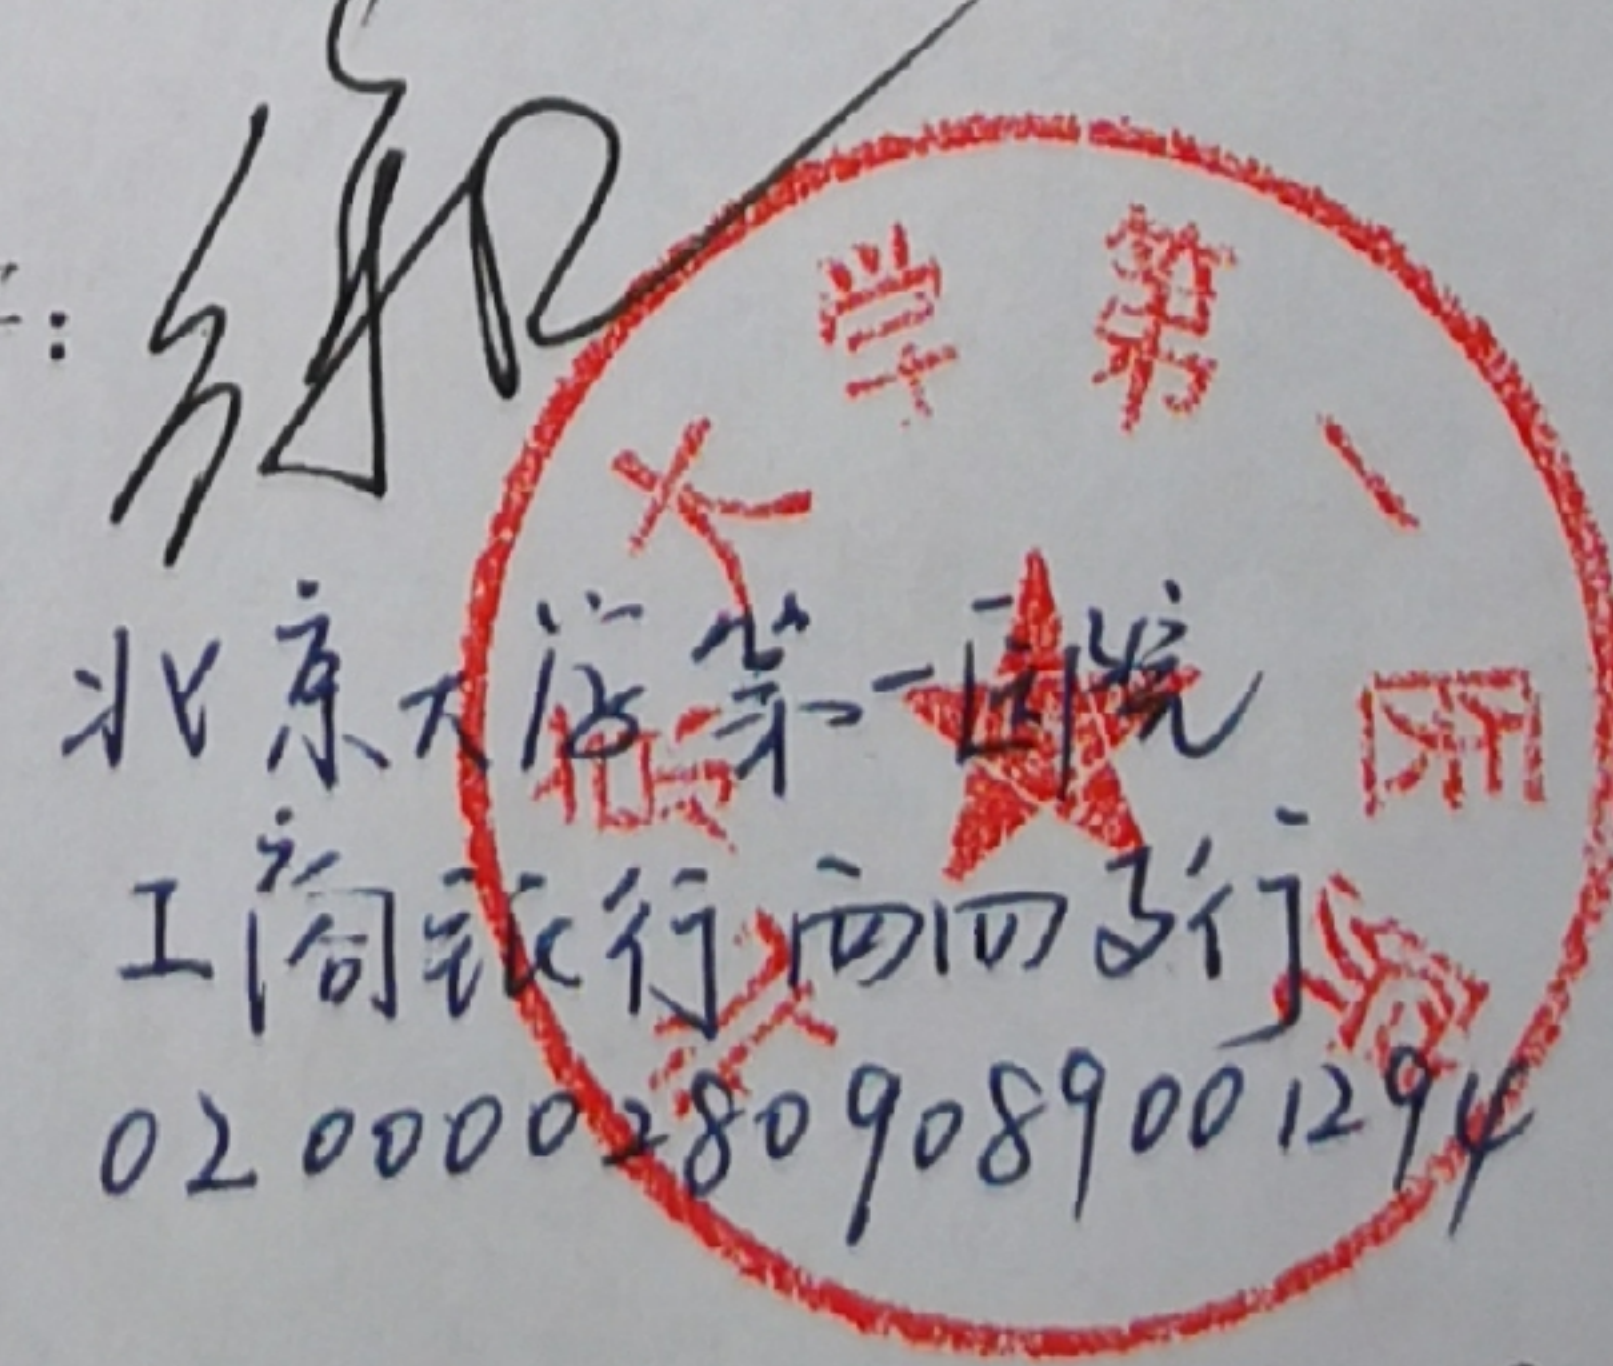 北京大学第一医院
北京大学第一医院
工商银行西四支行
0200002809089001294